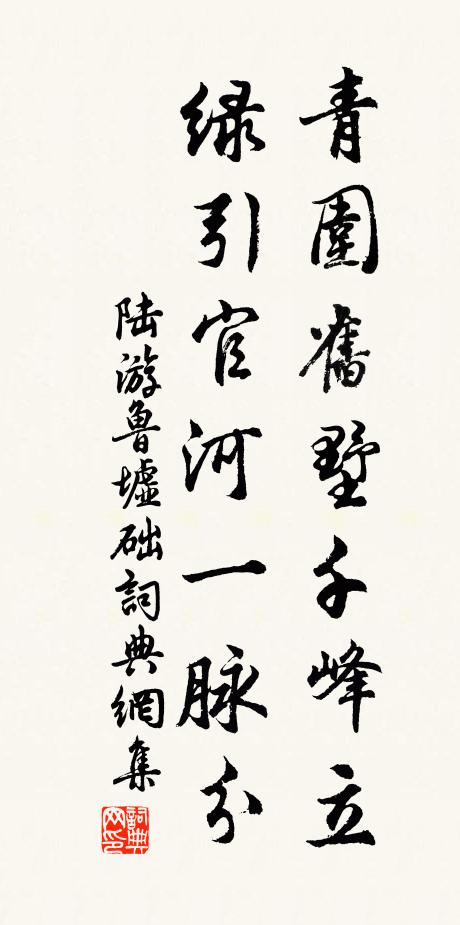 青圍舊墅千峰立
綠引官河一脉分
陸游魯墟础詞典網集
詞典网印